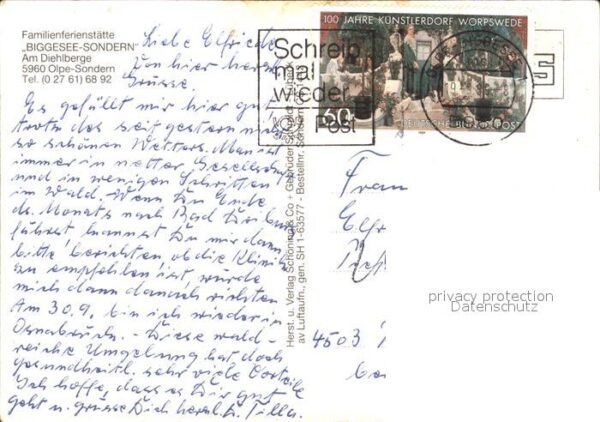 Familienferienstätte
„BIGGESEE-SONDERN"
Am Diehlberge
5960 Olpe-Sondern
Tel. (0 27 61) 68 92
Liebe Elfriede
von hier herzl.
Grüsse.
Es gefällt mir hier gut
trotz des seit gestern nicht
so schönen Wetters. Man ist
immer in netter Gesellschaft
und in wenigen Schritten
im Wald. Wenn Du Ende
ds. Monats nach Bad Driburg
fährst, kannst Du mir dann
bitte berichten ob die Klinik
zu empfehlen ist, würde
mich dann danach richten
Am 30.9. bin ich wieder in
Osnabrück. - Diese wald-
reiche Umgebung hat doch
gesundheitl. sehr viele Vorteile
Ich hoffe, dass es Dir gut
geht u. grüsse Dich herzl. D. Tilla.
Herst. u. Verlag Schöning & Co + Gebrüder Schmidt, Lübeck
av Luftaufn., gen. SH 1-63577 - Bestellnr. Sondern
Schreib
mal
wieder
Post
100 JAHRE KÜNSTLERDORF WORPSWEDE
60
DEUTSCHE BUNDESPOST
Frau
Elfr
4503
privacy protection
Datenschutz